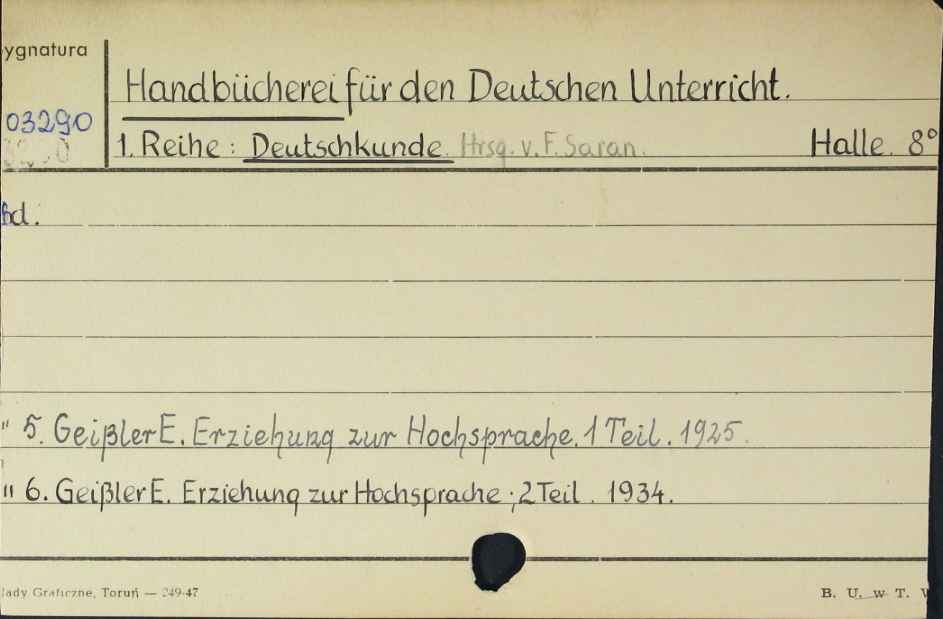 ygnatura
Handbücherei für den Deutschen Unterricht.
03290
1. Reihe : Deutschkunde. Hrsg. v. F. Saran. Halle. 8°
bd.
" 5. Geißler E. Erziehung zur Hochsprache. 1 Teil. 1925.
" 6. Geißler E. Erziehung zur Hochsprache ; 2 Teil. 1934.
łady Graficzne, Toruń — 249-47
B. U. w T.